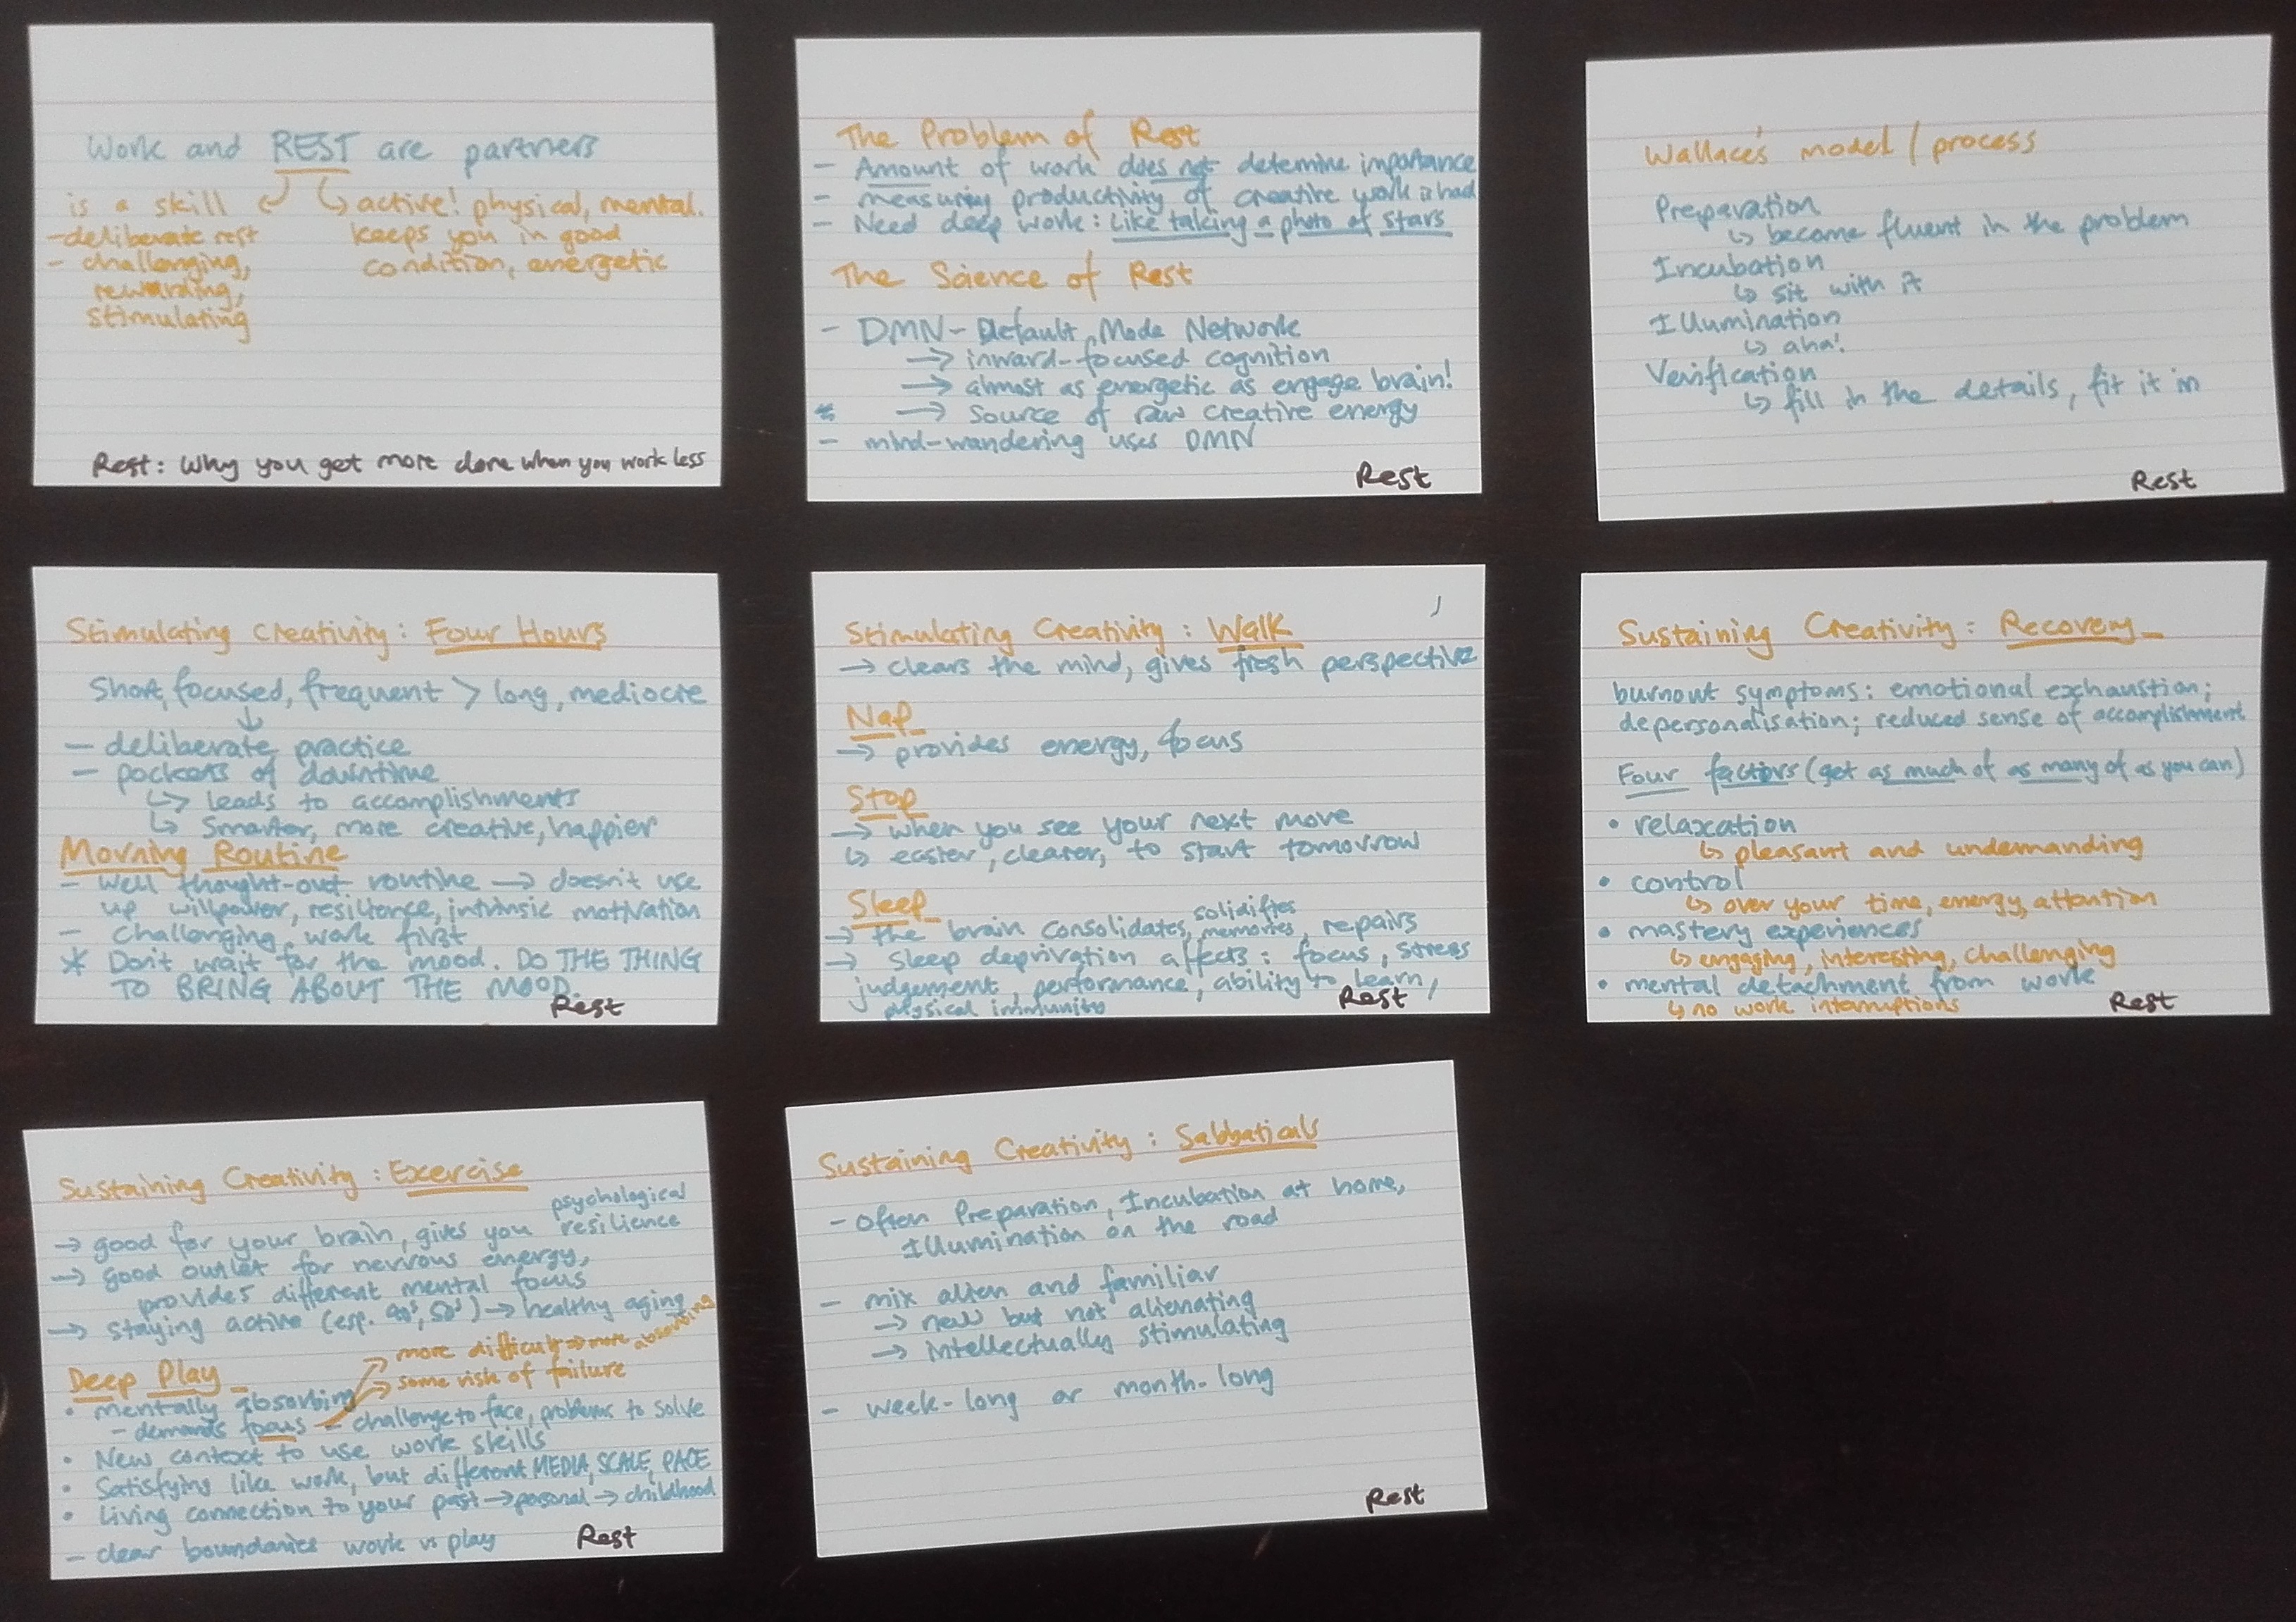 Work and REST are partners
is a skill
- deliberate rest
- challenging,
rewarding,
stimulating
active! physical, mental.
keeps you in good
condition, energetic
Rest: Why you get more done when you work less
The Problem of Rest
- Amount of work does not determine importance
- measuring productivity of creative work is hard
- Need deep work: like taking a photo of stars
The Science of Rest
- DMN - Default Mode Network
→ inward-focused cognition
→ almost as energetic as engage brain!
* → source of raw creative energy
- mind-wandering uses DMN
Rest
Wallace's model / process
Preparation
↳ become fluent in the problem
Incubation
↳ sit with it
Illumination
↳ aha!
Verification
↳ fill in the details, fit it in
Rest
Stimulating Creativity: Four Hours
Short, focused, frequent > long, mediocre
↓
- deliberate practice
- pockets of downtime
↳ leads to accomplishments
↳ Smarter, more creative, happier
Morning Routine
- Well thought-out routine → doesn't use
up willpower, resilience, intrinsic motivation
- Challenging work first
* Don't wait for the mood. DO THE THING
TO BRING ABOUT THE MOOD.
Rest
Stimulating Creativity: Walk
→ clears the mind, gives fresh perspective
Nap
→ provides energy, focus
Stop
→ when you see your next move
↳ easier, clearer, to start tomorrow
Sleep
→ the brain consolidates, solidifies memories, repairs
→ Sleep deprivation affects: focus, stress
judgement, performance, ability to learn,
physical immunity
Rest
Sustaining Creativity: Recovery
burnout symptoms: emotional exchaustion;
depersonalisation; reduced sense of accomplishment
Four factors (get as much of as many of as you can)
• relaxation
↳ pleasant and undemanding
• control
↳ over your time, energy, attention
• mastery experiences
↳ engaging, interesting, challenging
• mental detachment from work
↳ no work interruptions
Rest
Sustaining Creativity: Exercise
→ good for your brain, gives you psychological resilience
→ good outlet for nervous energy,
provides different mental focus
→ staying active (esp. 40s, 50s) → healthy aging
Deep Play
→ more difficult → more absorbing
→ some risk of failure
• mentally absorbing
- demands focus - challenge to face, problems to solve
• New context to use work skills
• Satisfying like work, but different MEDIA, SCALE, PACE
• Living connection to your past → personal → childhood
- clear boundaries work vs play
Rest
Sustaining Creativity: Sabbaticals
- Often Preparation, Incubation at home,
Illumination on the road
- mix alien and familiar
→ new but not alienating
→ intellectually stimulating
- week-long or month-long
Rest